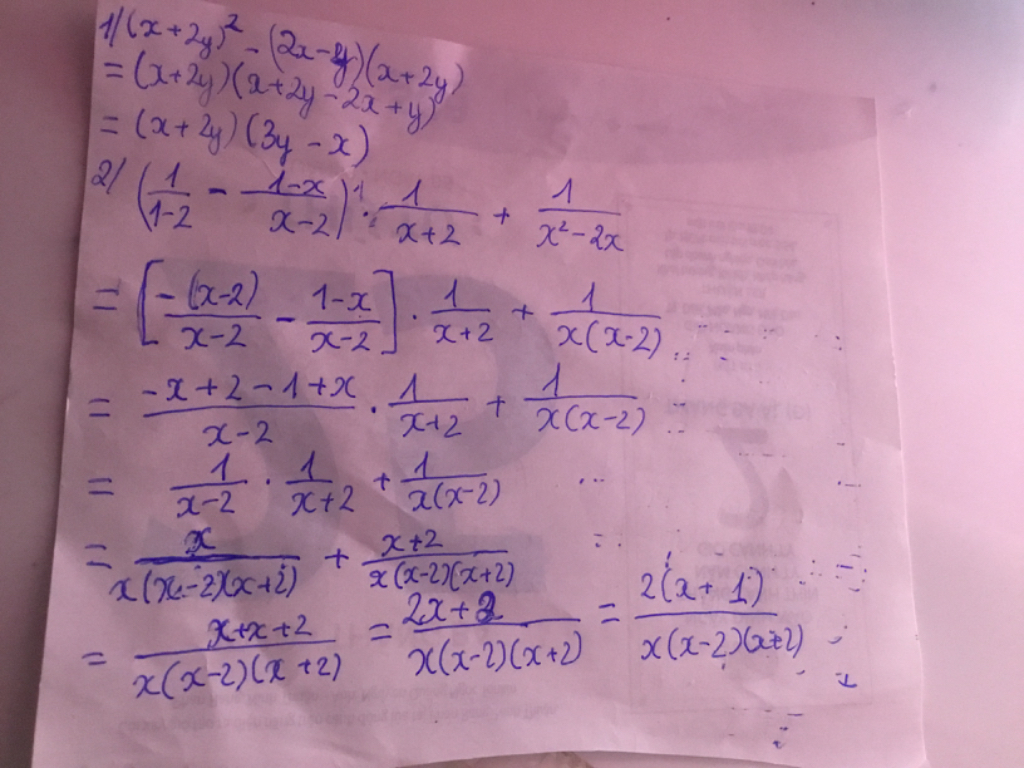 1/ (x+2y)² - (2x-y)(x+2y)
= (x+2y)(x+2y-2x+y)
= (x+2y)(3y-x)
2/ (1/(1-2) - (1-x)/(x-2)) · 1/(x+2) + 1/(x²-2x)
= [-(x-2)/(x-2) - (1-x)/(x-2)] · 1/(x+2) + 1/(x(x-2))
= (-x+2-1+x)/(x-2) · 1/(x+2) + 1/(x(x-2))
= 1/(x-2) · 1/(x+2) + 1/(x(x-2))
= x/(x(x-2)(x+2)) + (x+2)/(x(x-2)(x+2))
= (x+x+2)/(x(x-2)(x+2)) = (2x+2)/(x(x-2)(x+2)) = 2(x+1)/(x(x-2)(x+2))